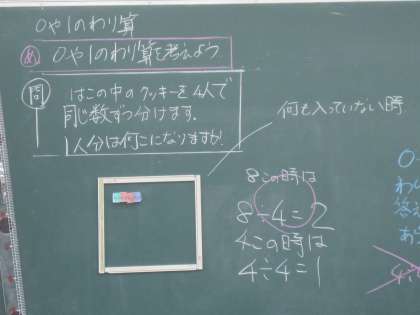 0や1のわり算
め 0や1のわり算を考えよう
問 はこの中のクッキーを4人で
同じ数ずつ分けます。
1人分は何こになりますか。
何も入っていない時
8この時は
8÷4=2
4この時は
4÷4=1
0
わり